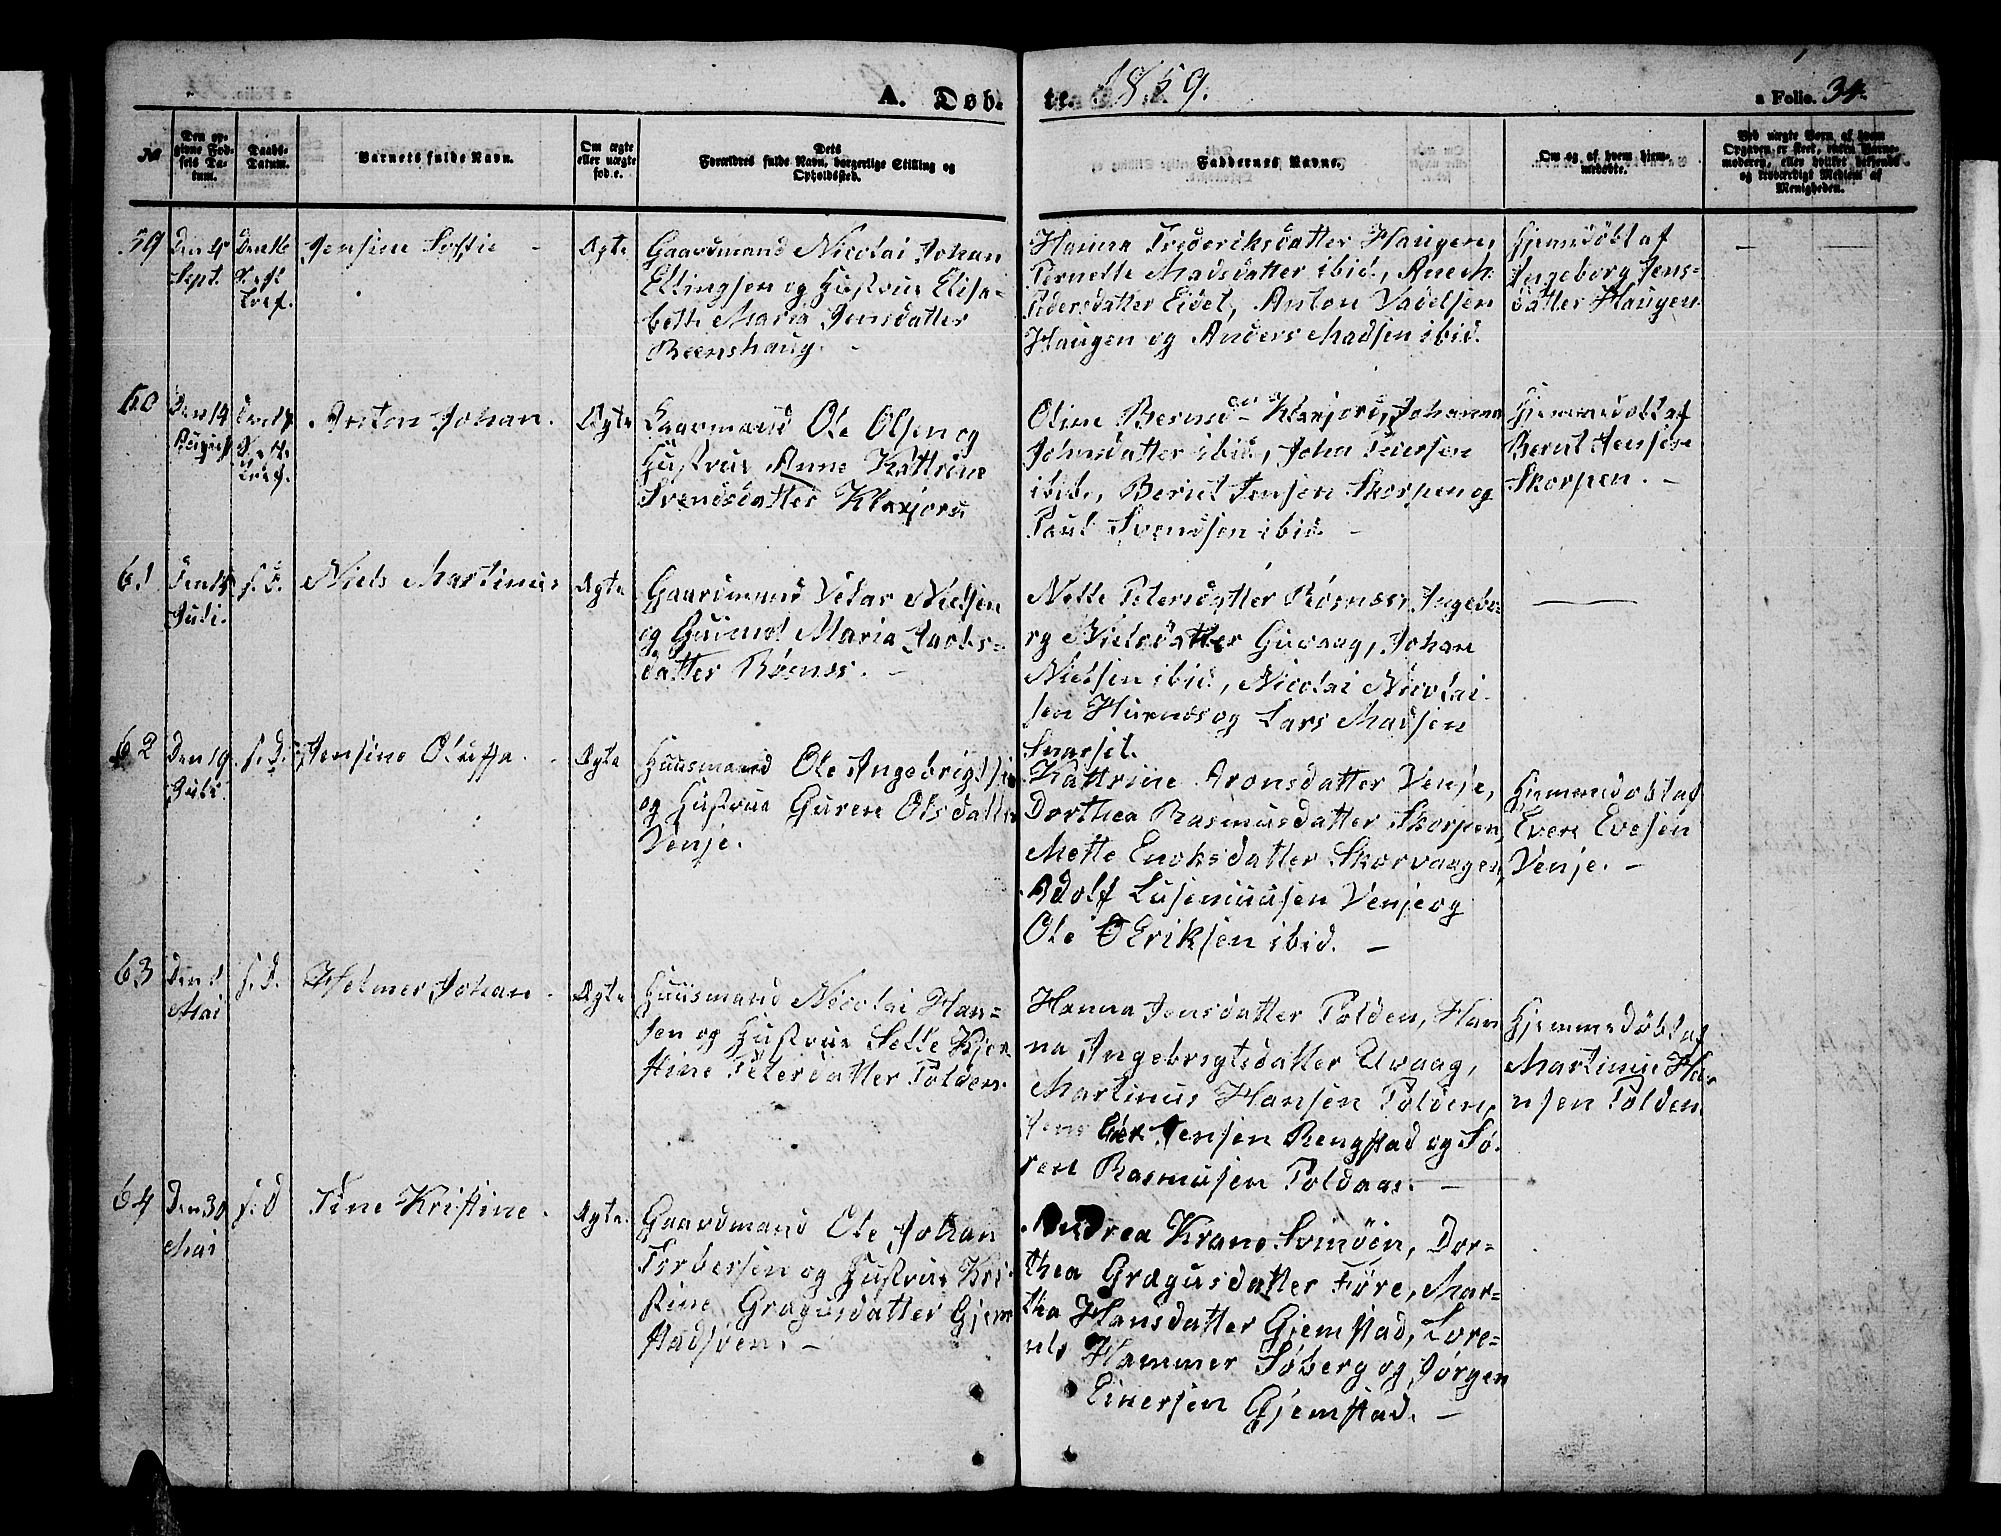 A. Døb-
te. 1859.
a Folio. 34.
No
Den op-
givne Fød-
sels Da-
tum.
Daabs-
Datum.
Barnets fulde Navn.
Om ægte
eller uægte
født.
Dets
Forældres fulde Navn, borgerlige Stilling og
Opholdssted.
Faddernes Navne.
Om og af hvem hjem-
medøbt.
Ved uægte Børn af hvem
Opgaven er skeet, enten Barne-
moderen, eller hvilket bekjendt
og troværdigt Medlem af
Menigheden.
59
Den 4
Sept.
Den 16
Jensine Soffie -
Ægte
Gaardmand Nicolai Johan
Ellingsen og Hustrue Elisa-
beth Maria Jensdatter
Reenshaug. -
Hanna Frederiksdatter Haugen,
Pernelle Madsdatter ibid., Ane M.
Pedersdatter Eidet, Anton
Haugen og Anders Madsen ibid.
Hjemdøbt af
Ingeborg Jens-
datter Haugen
60
Den 14
August
Anton Johan.
Ægte
Gaardmand Ole Olsen og
Hustrue Anne Kattrine
Svendsdatter Klaxjord
Oline Berns Klaxjord, Johanna
Johnsdatter ibid., John Pedersen
ibid., Bernt Jensen Skorpen og
Paul Svendsen ibid -
Hjemmedøbt af
Bernt Jensen
Skorpen. -
61
Den 14
Juli.
s. D.
Niels Martinus
Ægte
Gaardmand Petar Nielsen
og Maria Jacobs-
datter Røsnes. -
Nelle Petersdatter Røsnes, Ingebo-
rg Nielsdatter Guvaag, Johan
Nielsen ibid., Nicolai Nicolai-
sen Hurnes og Lars Madsen
62
Den 19
Juli.
s. D.
Jensine Oluffa. -
Ægte
Huusmand Ole Ingebrigtsen
og Hustrue Guren Olsdatter
Venje.
Kattrine Aronsdatter Venje,
Dorthea Rasmusdatter Skorpen,
Mette Enoksdatter Skorvaagen,
Adolf Venje og
Ole Eriksen ibid. -
Hjemmedøbt af
Evert Evesen
Venje. -
63
Den 1
Mai
s. D.
Helmer Johan -
Ægte
Huusmand Nicolai Han-
sen og Hustrue Selle Kjer
stine Petersdatter Polden.
Hanna Jensdatter Polden, Han
na Ingebrigtsdatter Uvaag,
Martinus Hansen Polden,
Jens Jensen Rengstad og Sø-
ren Rasmusen Poldaas. -
Hjemmedøbt af
Martinus Ha-
nsen Polden
64
Den 30
Mai
s. D
Fine Kristine.
Ægte.
Gaardmand Ole Johan
Torbersen og Hustrue Kri
stine Grægusdatter Gjem
stadsøen. -
Andrea Krane Svinøen, Dor-
thea Grægusdatter Føre, Mar-
tha Hansdatter Gjemstad, Lore-
nts Hammer Søberg og Jørgen
Einersen Gjemstad. -